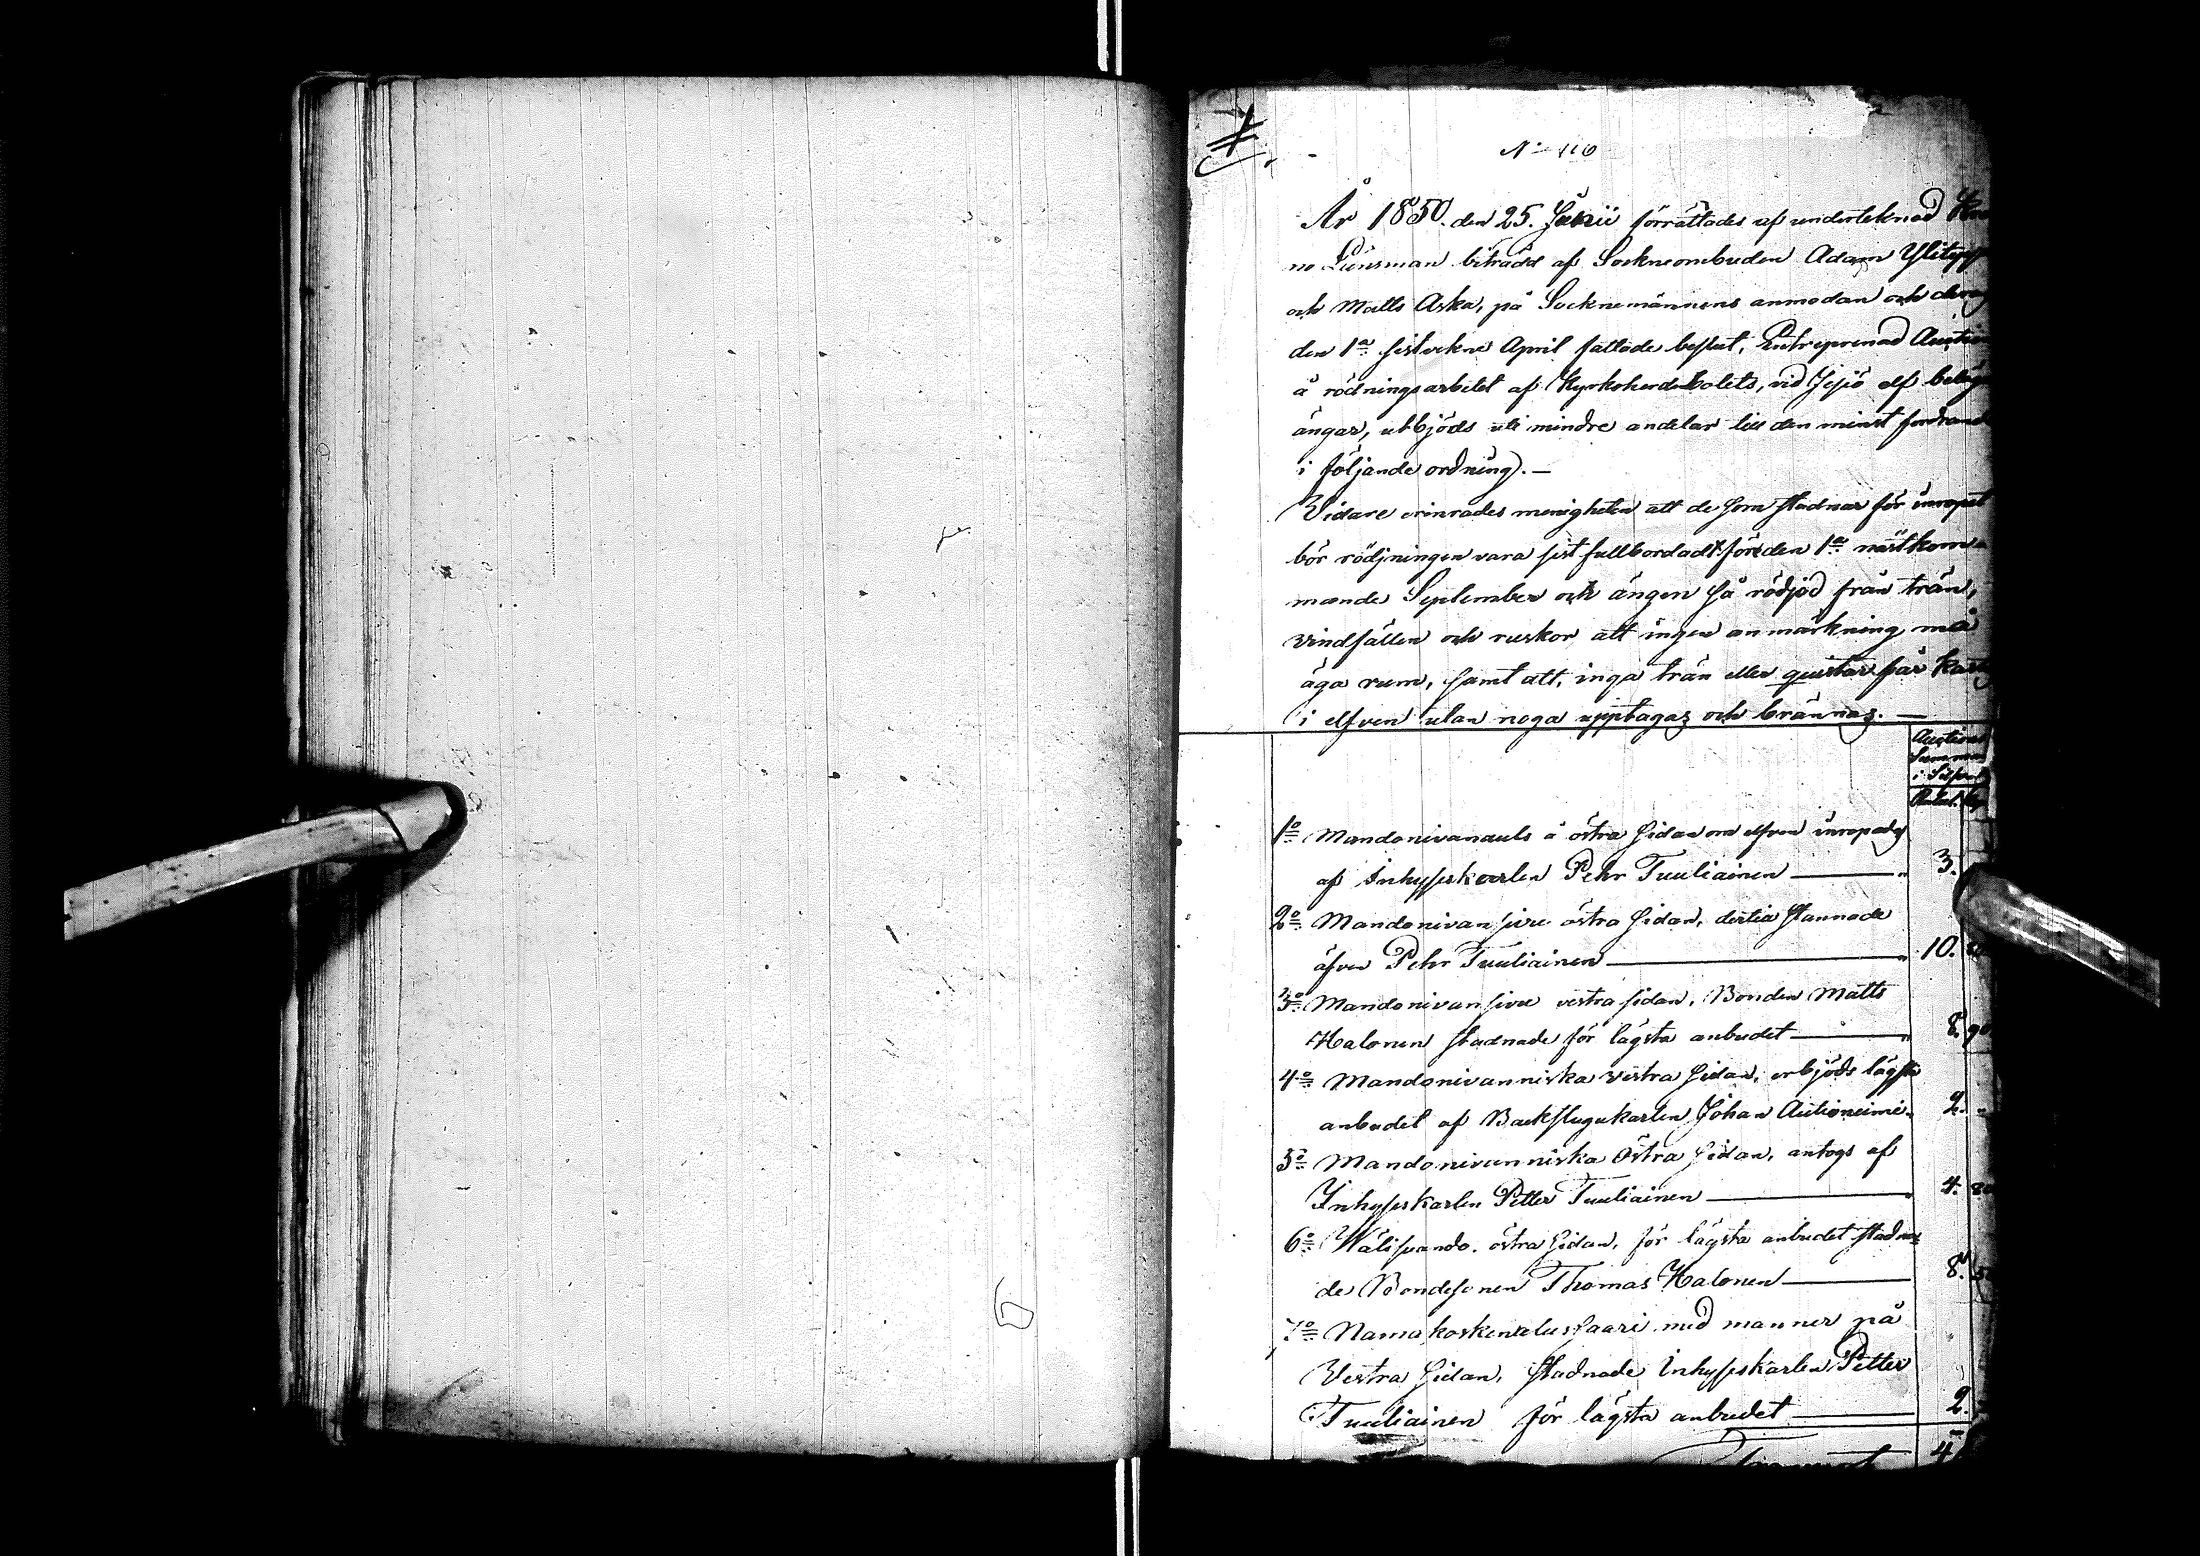 N:o 116
År 1850. den 25. Junii förrättades af undertecknad Kro
no Länsman biträdd af Sockneombuden Adam
och Matts Aska, på Socknemännens anmodan och
den 1:a sistvekne April fattade beslut, Entreprenad Auction
å rödningsarbetet af Kyrkoherdebolets, vid Jesiö elf beläg
ängar, utbjöds uti mindre andelar till den minst fordrand
i följande ordning). —
Vidare erinrades menigheten att de som stadnar för inropet
bör rödjningen vara sist fullbordadt före den 1:a nästkom-
mande September och ängen så rödjod från trän,
vindfällen och ruskor att ingen anmärkning må
äga rum, samt att, inga trän eller quistar får kast
i elfven utan noga upptagas och brännas. —
Auctions
Summa
i Silfver
Rubel. Kop
1:o Mandonivanauls å östra sidan om elfven inropades
af Inhyseskarlen Pehr Tuuliainen — 3.
2:o Mandonivansivu östra sidan, dertill stannade
äfven Pehr Tuuliainen — 10.
3:o Mandonivansivu vestra sidan, Bonden Matts
Halonen stadnade för lägsta anbudet — 8. 90
4:o Mandonivanniska vestra sidan, erbjöds lägsta
anbudet af Backstugukarlen Johan 2. "
5:o Mandonivanniska Östra sidan, antogs af
Inhyseskarlen Petter Tuuliainen — 4.
6:o östra sidan, för lägsta anbudet stadna
de Bondesonen Thomas Halonen — 8.
7:o med manner på
Vestra sidan, stadnade Inhyseskarlen Petter
Tuuliainen för lägsta anbudet — 2.